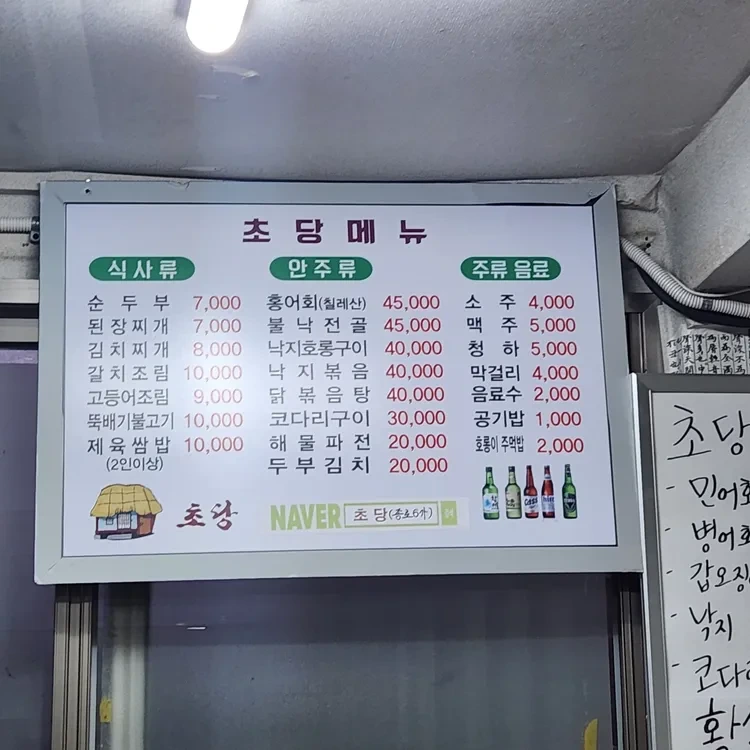 초당메뉴
식사류
순두부 7,000
된장찌개 7,000
김치찌개 8,000
갈치조림 10,000
고등어조림 9,000
뚝배기불고기 10,000
제육쌈밥 10,000
(2인이상)
안주류
홍어회(칠레산) 45,000
불낙전골 45,000
낙지호롱구이 40,000
낙지볶음 40,000
닭볶음탕 40,000
코다리구이 30,000
해물파전 20,000
두부김치 20,000
주류음료
소주 4,000
맥주 5,000
청하 5,000
막걸리 4,000
음료수 2,000
공기밥 1,000
호롱이 주먹밥 2,000
초당
NAVER 초당(종로6가)
초당
- 민어회
- 병어회
- 갑오징
- 낙지
- 코다리